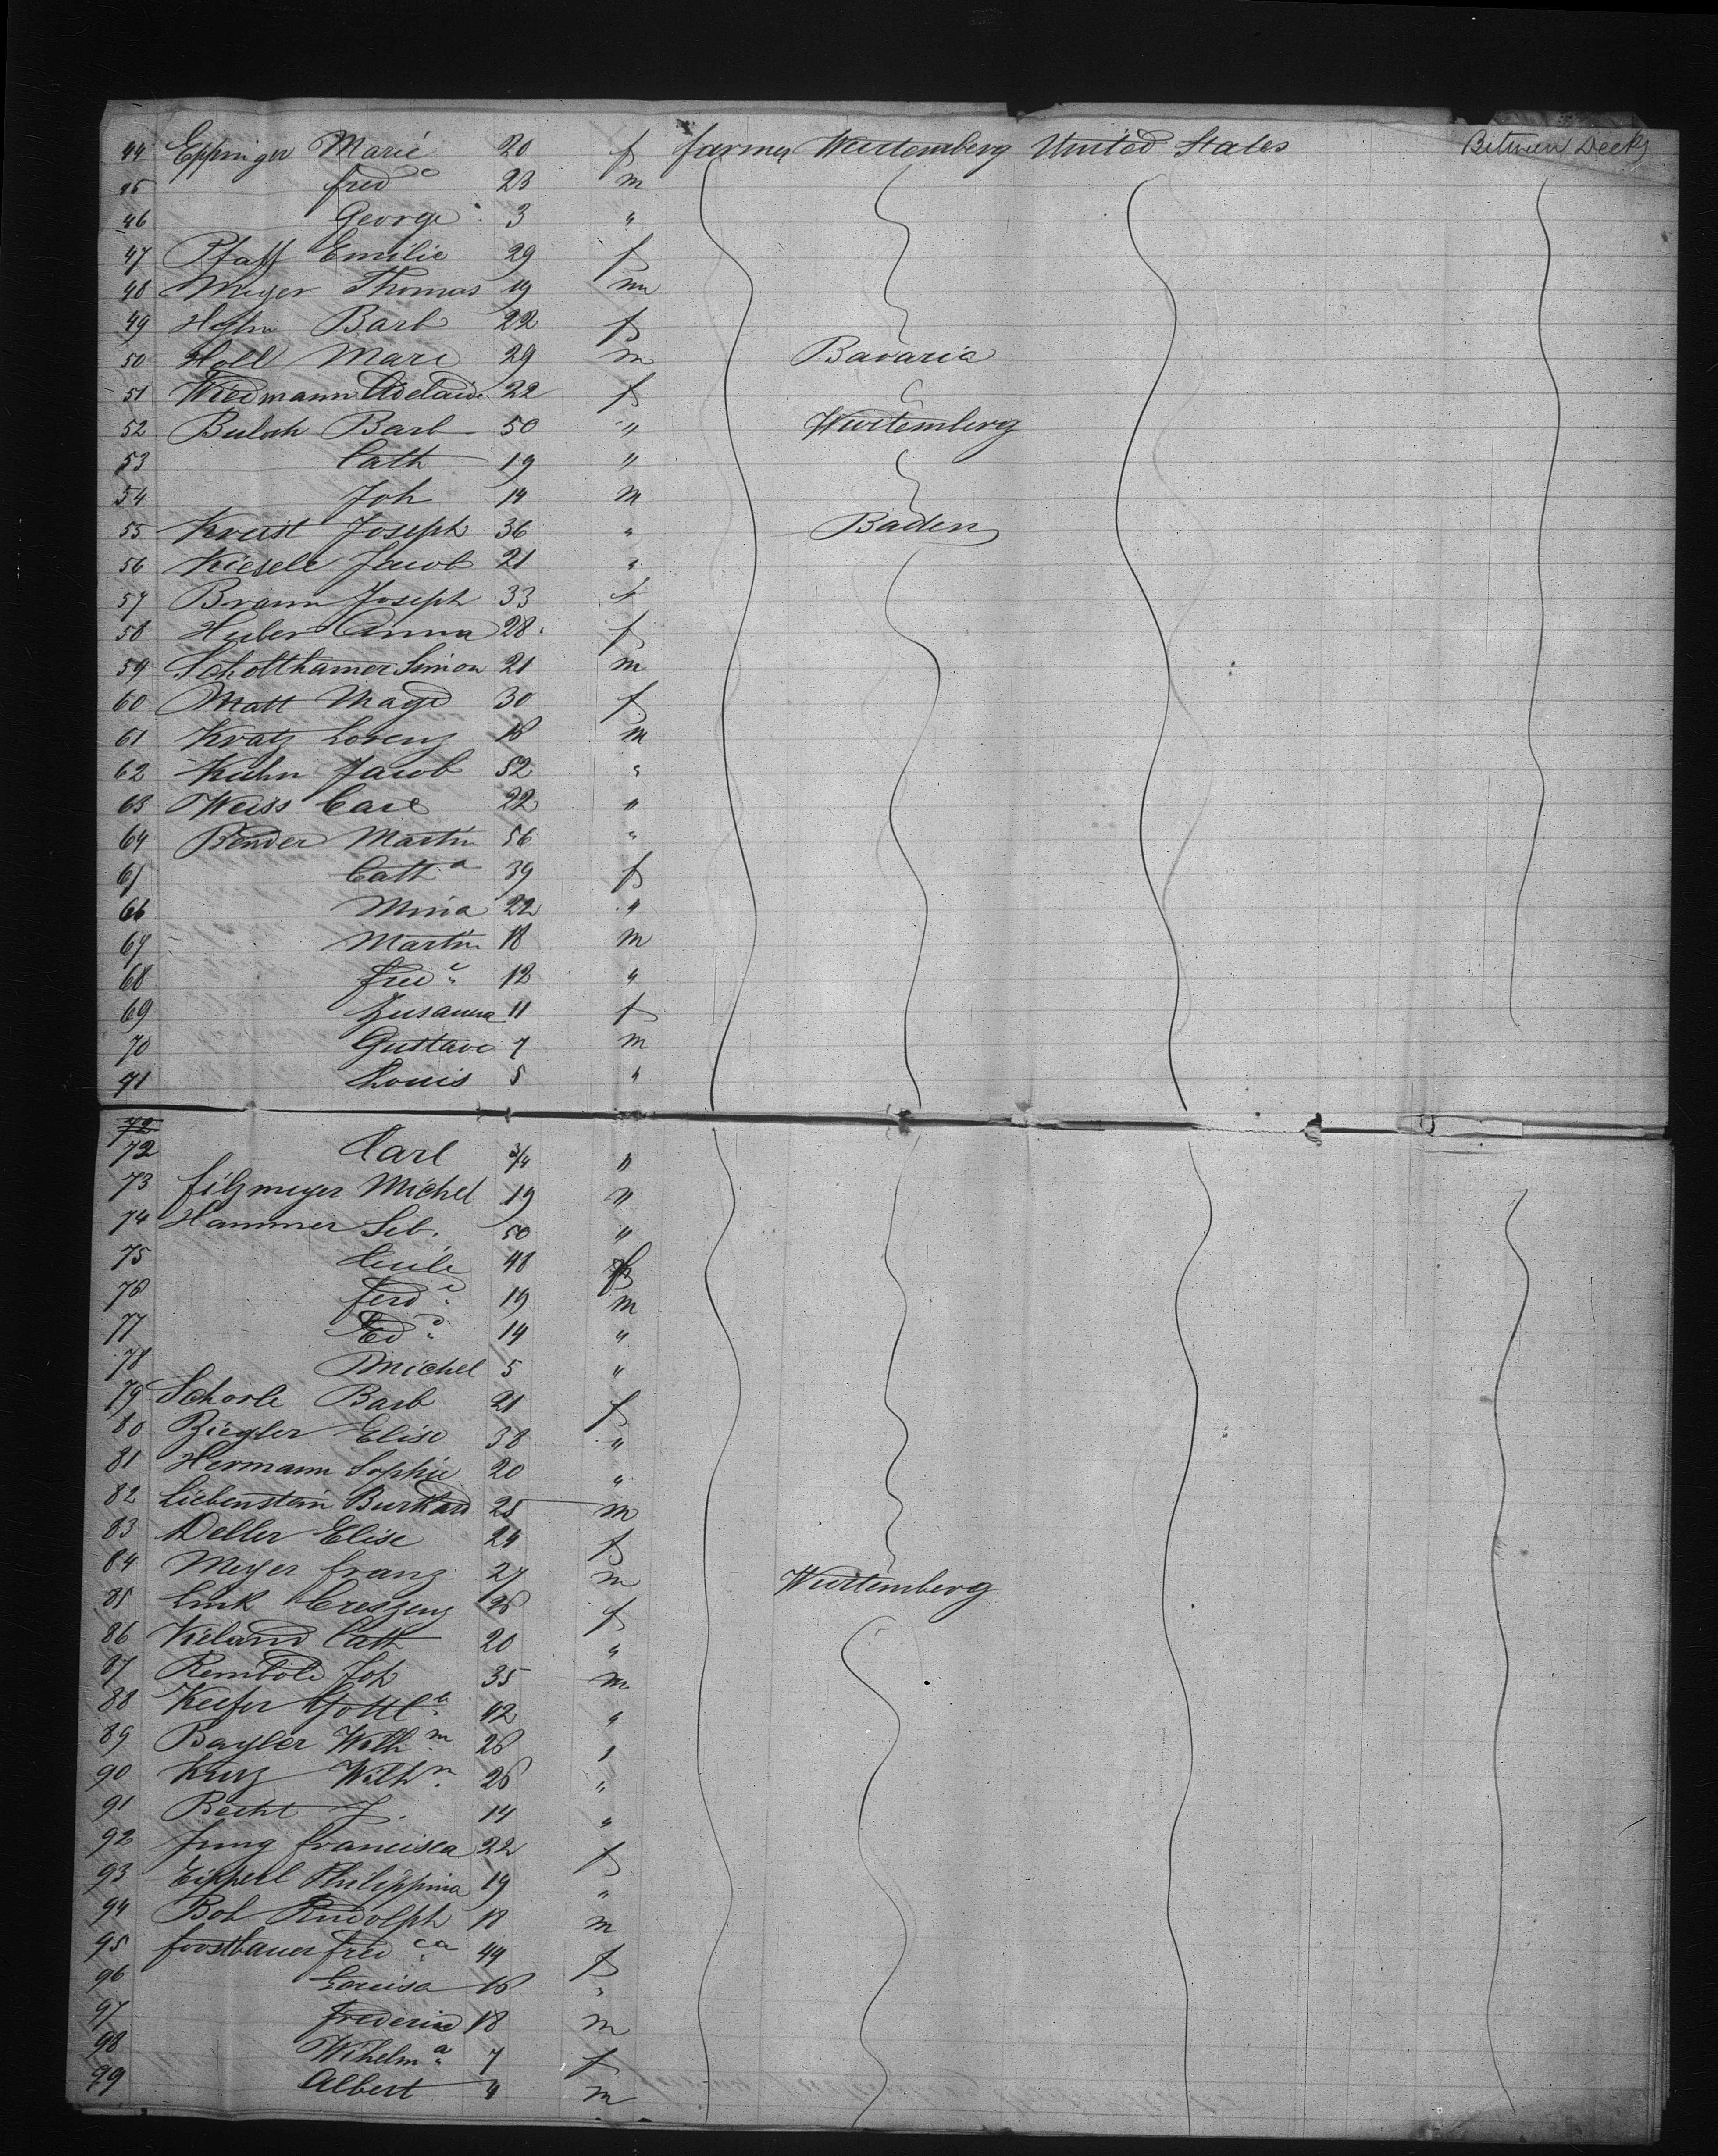 44 Eppinger Marie 20 f farmer Wurtemberg United States Between Decks
45 fred c 23 m
46 George 3 "
47 Pfaff Emilie 29 f
48 Meyer Thomas 19 m
49 Barb 22 f
50 Holl Marc 29 m Bavaria
51 Wiedmann Adelaide 22 f
52 Bulach Barb 50 " Wurtemberg
53 Cath 19 "
54 Joh 14 m
55 Kreist Joseph 36 " Baden
56 Kiesele Jacob 21 "
57 Braun Joseph 33
58 Huber Anna 28 f
59 Scholthamer Simon 21 m
60 Matt Magd 30 f
61 Kratz Lorenz 18 m
62 Kuhn Jacob 52 "
63 Weiss Carl 22 "
64 Bender Martin 56 "
65 Cath a 39 f
66 Mina 22 "
67 Martin 18 m
68 fred c 12 "
69 Zusanna 11 f
70 Gustave 7 m
71 Louis 5 "
72
72 Carl 3/4 "
73 filzmeyer Michel 19 "
74 Hammer Seb. 50 "
75 Cecile 48 f
76 ferd d 19 m
77 Ed d 14 "
78 Michel 5 "
79 Schorle Barb 21 f
80 Ziegler Elise 38 "
81 Hermann Sophie 20 "
82 Liebenstein Burkhard 25 m
83 Deller Elise 24 f
84 Meyer franz 27 m Wurtemberg
85 Link Creszenz 26 f
86 Kieland Cath 20 "
87 Rembold Joh 35 m
88 Keefer Gottl b 42 "
89 Bayler Wilh m 26 "
90 Kurz Wilh m 26 "
91 Becht J. 14 "
92 Jung francisca 22 f
93 Eippell Philippina 19 "
94 Bob Rudolph 18 m
95 forstbauer fred ca 44 f
96 Louisa 16 "
97 frederic 18 m
98 Wilhelm a 7 f
99 Albert 4 m